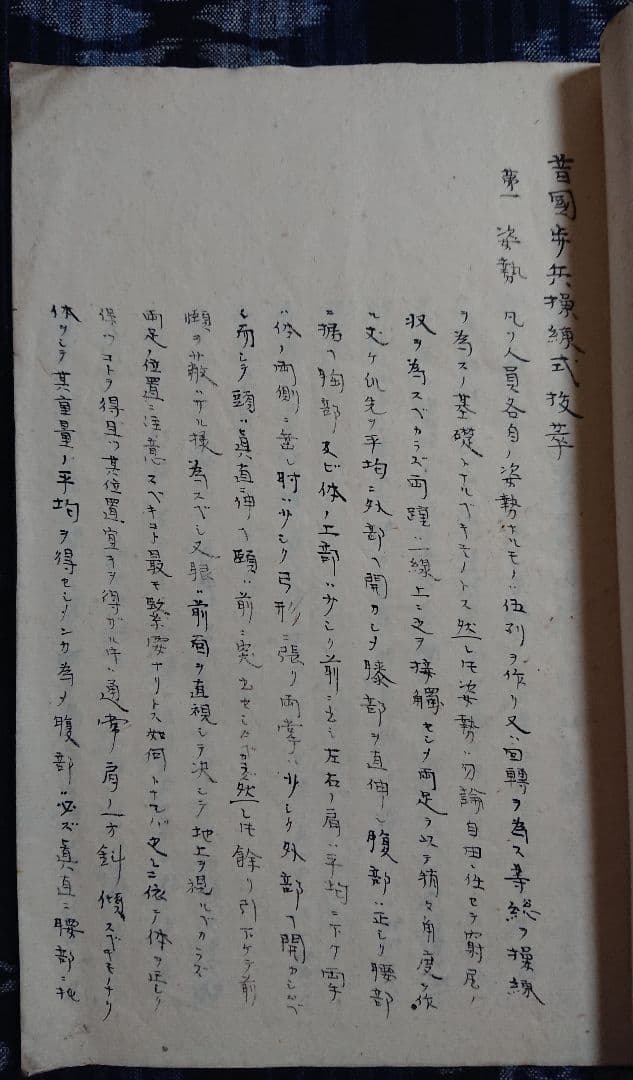 普國歩兵操練式抜萃
第一 姿勢 凡ソ人員各自ノ姿勢ナルモノハ伍列ヲ作リ又ハ回轉ヲ為ス等総テ操練
ヲ為スノ基礎トナルベキモノトス然レ𪜈姿勢ハ勿論自由ニ任セテ窮屈ノ
ヲ為スベカラズ両踵ハ一線上ニ之ヲ接觸セシメ両足ヲ以テ稍々角度ヲ作
ル丈ケ爪先ヲ平均ニ外部ヘ開カシメ膝部ヲ直伸シ腹部ハ正シク腰部
ニ据ヘ胸部及ビ体ノ上部ハ少シク前ニ出シ左右ノ肩ハ平均ニ下ケ両手
ハ体ノ両側ニ垂レ肘ハ少シク弓形ニ張リ両掌ハ少シク外部ヘ開カシム
シ而シテ頭ハ眞直ニ伸ヘ頤ハ前ニ突出セシム然レ𪜈餘リ引下ケテ前
ノ敵ハサル様為スベシ又眼ハ前面ヲ直視シテ決シテ地上ヲ視ルベカラズ
両足ノ位置ニ注意スベキコト最モ緊要ナリトス如何トナレバ之レニ依テ体ヲ正シク
保ツコトヲ得且ツ其位置宜キヲ得ザル𪜈ハ通常肩ノ一方斜傾スベキモノナリ
体ヲシテ其重量ノ平均ヲ得セシメンカ為メ腹部ハ必ズ眞直ニ腰部ニ